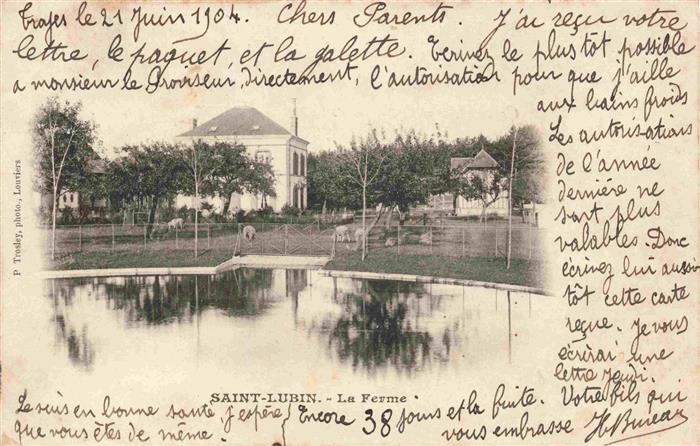 Trajes le 21 Juin 1904. Chers Parents. J'ai reçu votre
lettre, le paquet, et la galette. Ecrivez le plus tôt possible
a monsieur le Proviseur, directement, l'autorisation pour que j'aille
aux bains froids
Les autorisations
de l'année
dernière ne
sont plus
valables. Donc
écrivez lui aussi
tôt cette carte
reçue. Je vous
écrirai une
lettre jeudi.
Votre fils qui
vous embrasse
P Trosley, photo., Louviers
SAINT-LUBIN. - La Ferme
Je suis en bonne santé, j'espère
que vous êtes de même.
Encore 38 jours et la fuite.